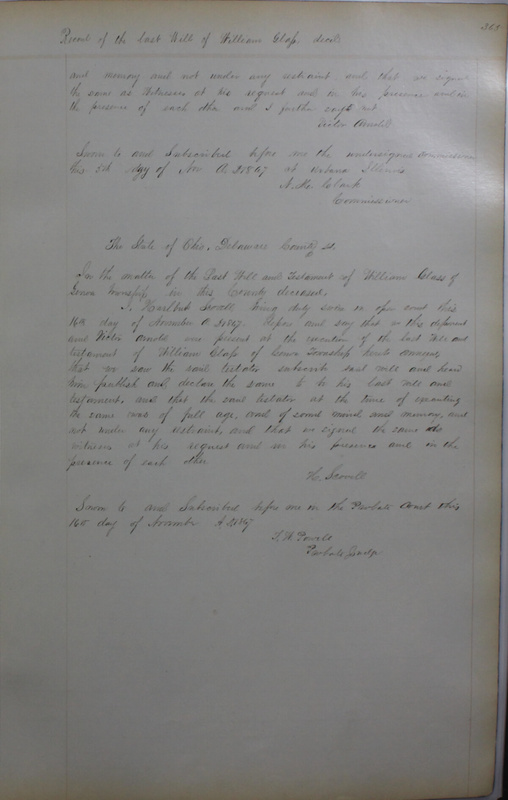 Record of the last Will of William Glass decd
and memory and not under any restraint and that we signed
the same as Witnesses at his request and in his presence and in
the presence of each other and I further sayeth not
Victor Arnold
Sworn to and Subscribed before me the undersigned Commissioner
this 5th day of Nov A.D. 1867 at Urbana Illinois
Clark
Commissioner
The State of Ohio, Delaware County ss.
In the matter of the Last Will and Testament of William Glass of
Township in this County deceased.
I, Scovell being duly sworn in open court this
16th day of November A.D. 1867. depose and say that in this deponent
and Victor Arnold were present at the execution of the last Will and
testament of William Glass of Township hereto annexed
that we saw the said testator subscribe said will and heard
him publish and declare the same to be his last will and
testament, and that the said testator at the time of executing
the same was of full age, and of sound mind and memory, and
not under any restraint, and that we signed the same as
witnesses at his request and in his presence and in the
presence of each other
H. Scovell
Sworn to and Subscribed before me in the Probate Court this
16th day of November A.D. 1867
T. W. Powell
Probate Judge